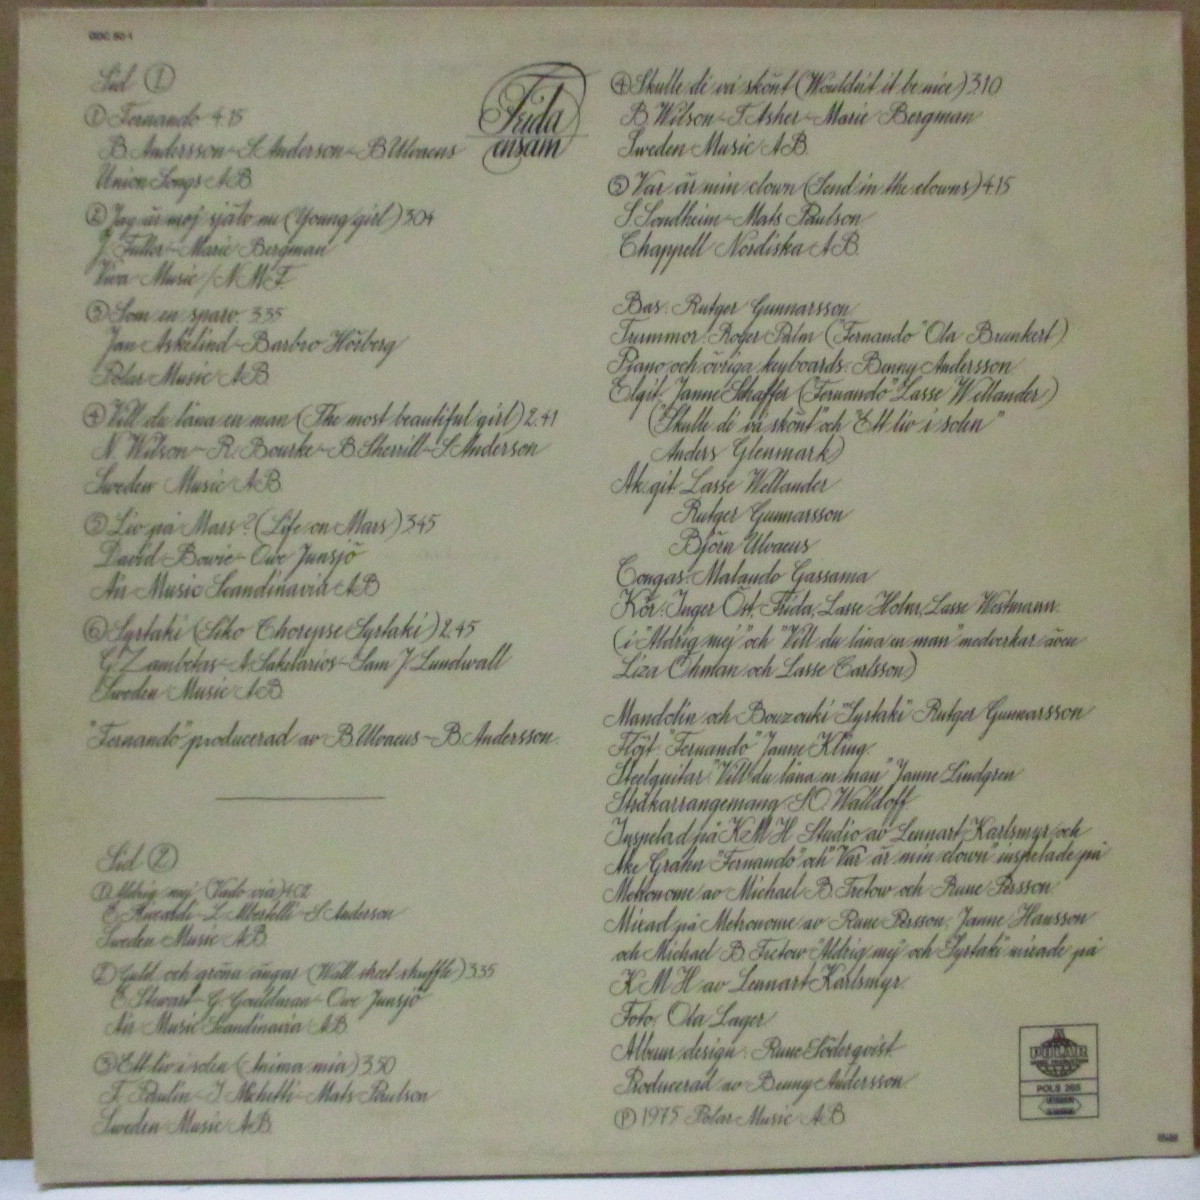 Sid 1
① Fernando 4.15
B. Andersson - S. Anderson - B. Ulvaeus
Union Songs AB
② Jag är mej själv nu (Young girl) 3.04
J. Fuller - Marie Bergman
Viva Music / N.M.F.
③ Som en sparv 3.35
Jan Askelind - Barbro Hörberg
Polar Music AB
④ Vill du låna en man (The most beautiful girl) 2.41
N. Wilson - R. Bourke - B. Sherrill - S. Anderson
Sweden Music AB
⑤ Liv på Mars? (Life on Mars) 3.45
David Bowie - Owe Junsjö
Air Music Scandinavia AB
⑥ Syrtaki (Siko Chorepse Syrtaki) 2.45
G. Zambetas - A. Sakelarios - Sam J. Lundwall
Sweden Music AB
"Fernando" producerad av B. Ulvaeus - B. Andersson.
Sid 2
① Aldrig mej (Vado via) 4.02
E. Riccardi - L. Albertelli - S. Anderson
Sweden Music AB
② Guld och gröna ängar (Wall street shuffle) 3.35
E. Stewart - G. Gouldman - Owe Junsjö
Air Music Scandinavia AB
③ Ett liv i solen (Anima mia) 3.50
F. Paulin - I. Michetti - Mats Paulson
Sweden Music AB
Frida
ensam
④ Skulle di va skönt (Wouldn't it be nice) 3.10
B. Wilson - T. Asher - Marie Bergman
Sweden Music AB
⑤ Var är min clown (Send in the clowns) 4.15
S. Sondheim - Mats Paulson
Chappell Nordiska AB
Bas: Rutger Gunnarsson
Trummor: Roger Palm ("Fernando" Ola Brunkert)
Piano och övriga keyboards: Benny Andersson
Elgit: Janne Schaffer ("Fernando" Lasse Wellander)
("Skulle di va skönt" och "Ett liv i solen"
Anders Glenmark)
Ak.git: Lasse Wellander
Rutger Gunnarsson
Björn Ulvaeus
Congas: Malando Gassama
Kör: Inger Öst, Frida, Lasse Holm, Lasse Westmann.
(i "Aldrig mej" och "Vill du låna en man" medverkar även
Liza Öhman och Lasse Carlsson)
Mandolin och Bouzouki "Syrtaki" Rutger Gunnarsson
Flöjt: "Fernando" Janne Kling.
Steelguitar: "Vill du låna en man" Janne Lindgren
Stråkarrangemang: S.O. Walldoff
Inspelad på K.M.H. Studio av Lennart Karlsmyr och
Åke Grahn "Fernando" och "Var är min clown" inspelade på
Metronome av Michael B. Tretow och Rune Persson
Mixad på Metronome av Rune Persson, Janne Hansson
och Michael B. Tretow "Aldrig mej" och "Syrtaki" mixade på
K.M.H av Lennart Karlsmyr.
Foto: Ola Lager
Album design: Rune Söderqvist
Producerad av Benny Andersson
℗ 1975 Polar Music AB
POLAR
POLS 265